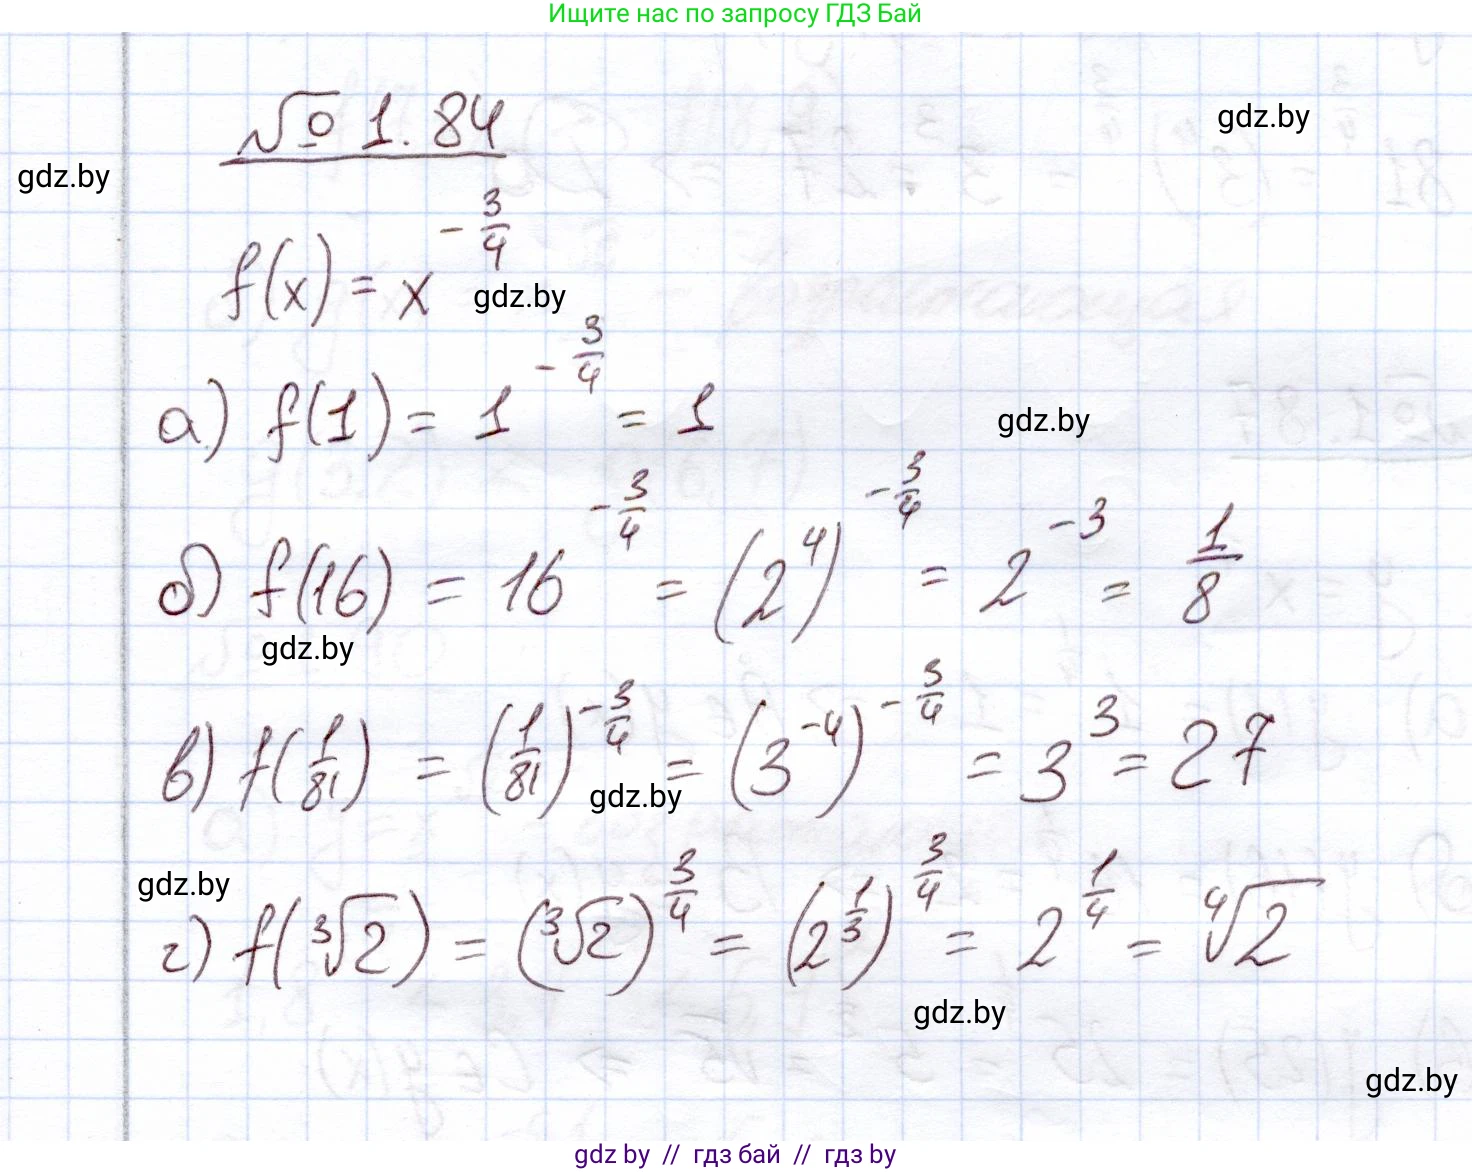 Ищите нас по запросу ГДЗ Бай
№ 1.84
gdz.by
gdz.by
f(x) = x^{-3/4}
gdz.by
а) f(1) = 1^{-3/4} = 1
gdz.by
б) f(16) = 16^{-3/4} = (2^4)^{-3/4} = 2^{-3} = 1/8
gdz.by
в) f(1/81) = (1/81)^{-3/4} = (3^{-4})^{-3/4} = 3^3 = 27
gdz.by
gdz.by
г) f(∛2) = (∛2)^{3/4} = (2^{1/3})^{3/4} = 2^{1/4} = ∜2
gdz.by
gdz.by
gdz by // гдз бай // гдз by